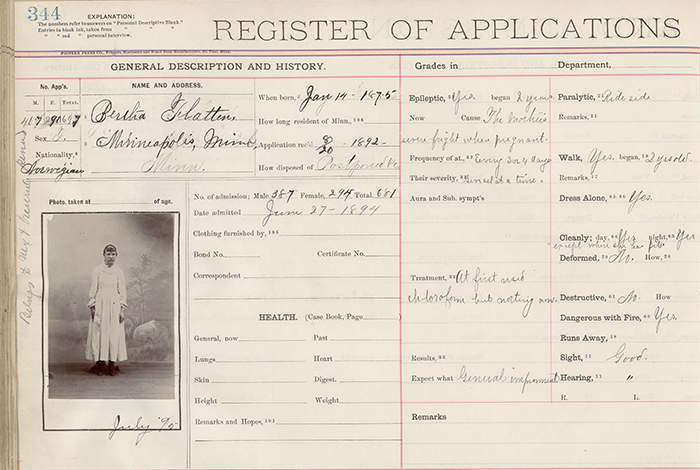 344
EXPLANATION:
The numbers refer to answers on "Personal Descriptive Blank."
Entries in black ink, taken from " " "
" " red " " personal interview.
REGISTER OF APPLICATIONS
GENERAL DESCRIPTION AND HISTORY.
Grades in
Department,
No. App's.
M. F. TOTAL.
NAME AND ADDRESS.
Bertha Flatten,
Minneapolis, Minn.
Minn.
Sex F.
Nationality,
Norwegian
When born, Jan 14 - 1875
How long resident of Minn.,
Application rec'd 8/20 - 1892-
How disposed of Postponed
Photo. taken at of age.
July '95
No. of admission; Male, 387 Female, 294 Total, 681
Date admitted June 27 - 1894
Clothing furnished by,
Bond No. Certificate No.
Correspondent
HEALTH. (Case Book, Page
General, now Past
Lungs Heart
Skin Digest.
Height Weight
Remarks and Hopes,
Epileptic, Yes began 2 years
Now Cause The mother's
severe fright when pregnant.
Frequency of at., Every 3 or 4 days
Their severity, Several at a time.
Aura and Sub. sympt's
Treatment, At first used
chloroform but nothing now.
Results,
Expect what General improvment
Paralytic, side
Remarks,
Walk, Yes. began, 2 yrs old.
Remarks,
Dress Alone, Yes.
Cleanly; day, Yes night, Yes
except when she has fits
Deformed, No. How,
Destructive, No. How
Dangerous with Fire, Yes.
Runs Away,
Sight, Good.
Hearing, "
R. L.
Remarks